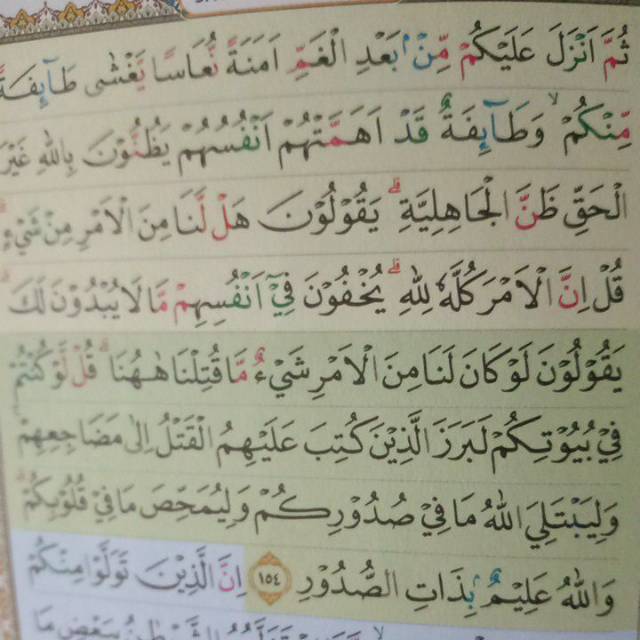 ثُمَّ اَنْزَلَ عَلَيْكُمْ مِّنْۢ بَعْدِ الْغَمِّ اَمَنَةً نُّعَاسًا يَّغْشٰى طَاۤىِٕفَةً
مِّنْكُمْۙ وَطَاۤىِٕفَةٌ قَدْ اَهَمَّتْهُمْ اَنْفُسُهُمْ يَظُنُّوْنَ بِاللّٰهِ غَيْرَ
الْحَقِّ ظَنَّ الْجَاهِلِيَّةِۗ يَقُوْلُوْنَ هَلْ لَّنَا مِنَ الْاَمْرِ مِنْ شَيْءٍۗ
قُلْ اِنَّ الْاَمْرَ كُلَّهٗ لِلّٰهِۗ يُخْفُوْنَ فِيْٓ اَنْفُسِهِمْ مَّا لَا يُبْدُوْنَ لَكَۗ
يَقُوْلُوْنَ لَوْ كَانَ لَنَا مِنَ الْاَمْرِ شَيْءٌ مَّا قُتِلْنَا هٰهُنَاۗ قُلْ لَّوْ كُنْتُمْ
فِيْ بُيُوْتِكُمْ لَبَرَزَ الَّذِيْنَ كُتِبَ عَلَيْهِمُ الْقَتْلُ اِلٰى مَضَاجِعِهِمْۚ
وَلِيَبْتَلِيَ اللّٰهُ مَا فِيْ صُدُوْرِكُمْ وَلِيُمَحِّصَ مَا فِيْ قُلُوْبِكُمْۗ
وَاللّٰهُ عَلِيْمٌۢ بِذَاتِ الصُّدُوْرِ ١٥٤ اِنَّ الَّذِيْنَ تَوَلَّوْا مِنْكُمْ